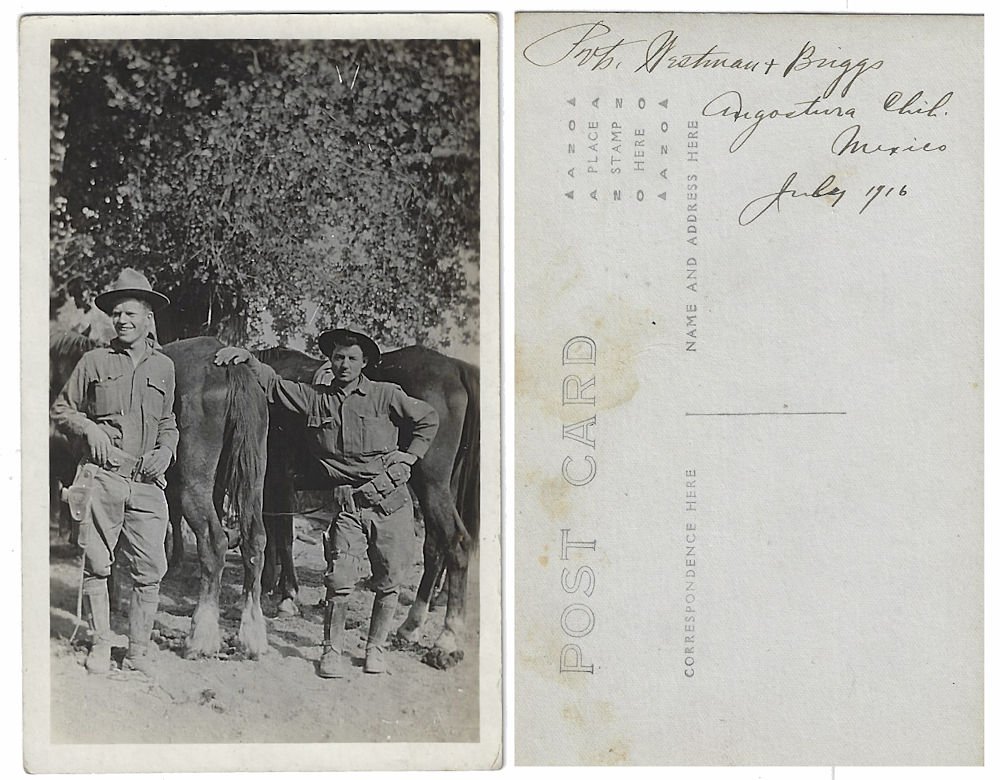 Pvts. Westman + Briggs
Angostura Chih.
Mexico
July 1916
AZO
PLACE
STAMP
HERE
AZO
NAME AND ADDRESS HERE
POST CARD
CORRESPONDENCE HERE